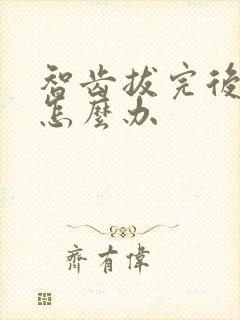 智齿拔完後
怎麼办
齊有偉